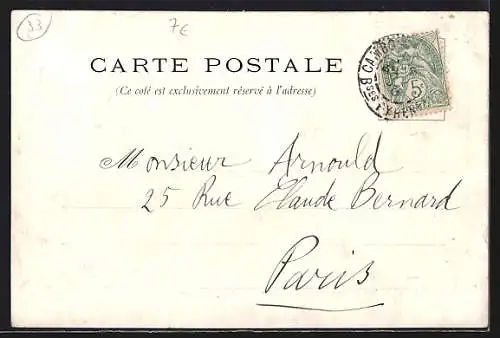 33
7€
CARTE POSTALE
(Ce coté est exclusivement réservé à l'adresse)
CAMBO
Bses PYRENEES
5
Monsieur Arnould
25 Rue Claude Bernard
Paris